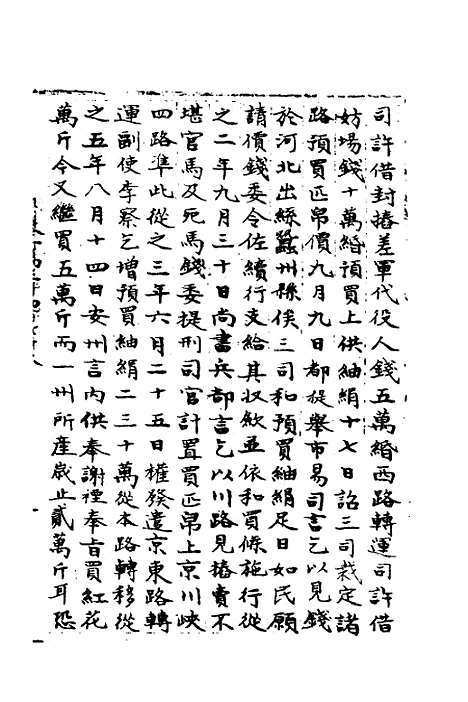 司許借封樁差軍代役人錢五萬緡西路轉運司許借
妨場錢十萬緡預買上供紬絹十七日詔三司裁定諸
路預買匹帛價九月九日都提舉市易司言乞以見錢
於河北出絲蠶州縣俟三司和預買紬絹足日如民願
請價錢委令佐續行支給其收歛並依和買條施行從
之二年九月三十日尚書兵部言乞以川路見樁賣不
堪官馬及死馬錢委提刑司官計置買匹帛上京川峽
四路準此從之三年六月二十五日權發遣京東路轉
運副使李察乞增預買紬絹二三十萬從本路轉移從
之五年八月十四日安州言內供奉謝禋奉旨買紅花
萬斤今又繼買五萬斤而一州所產歲止貳萬斤耳恐